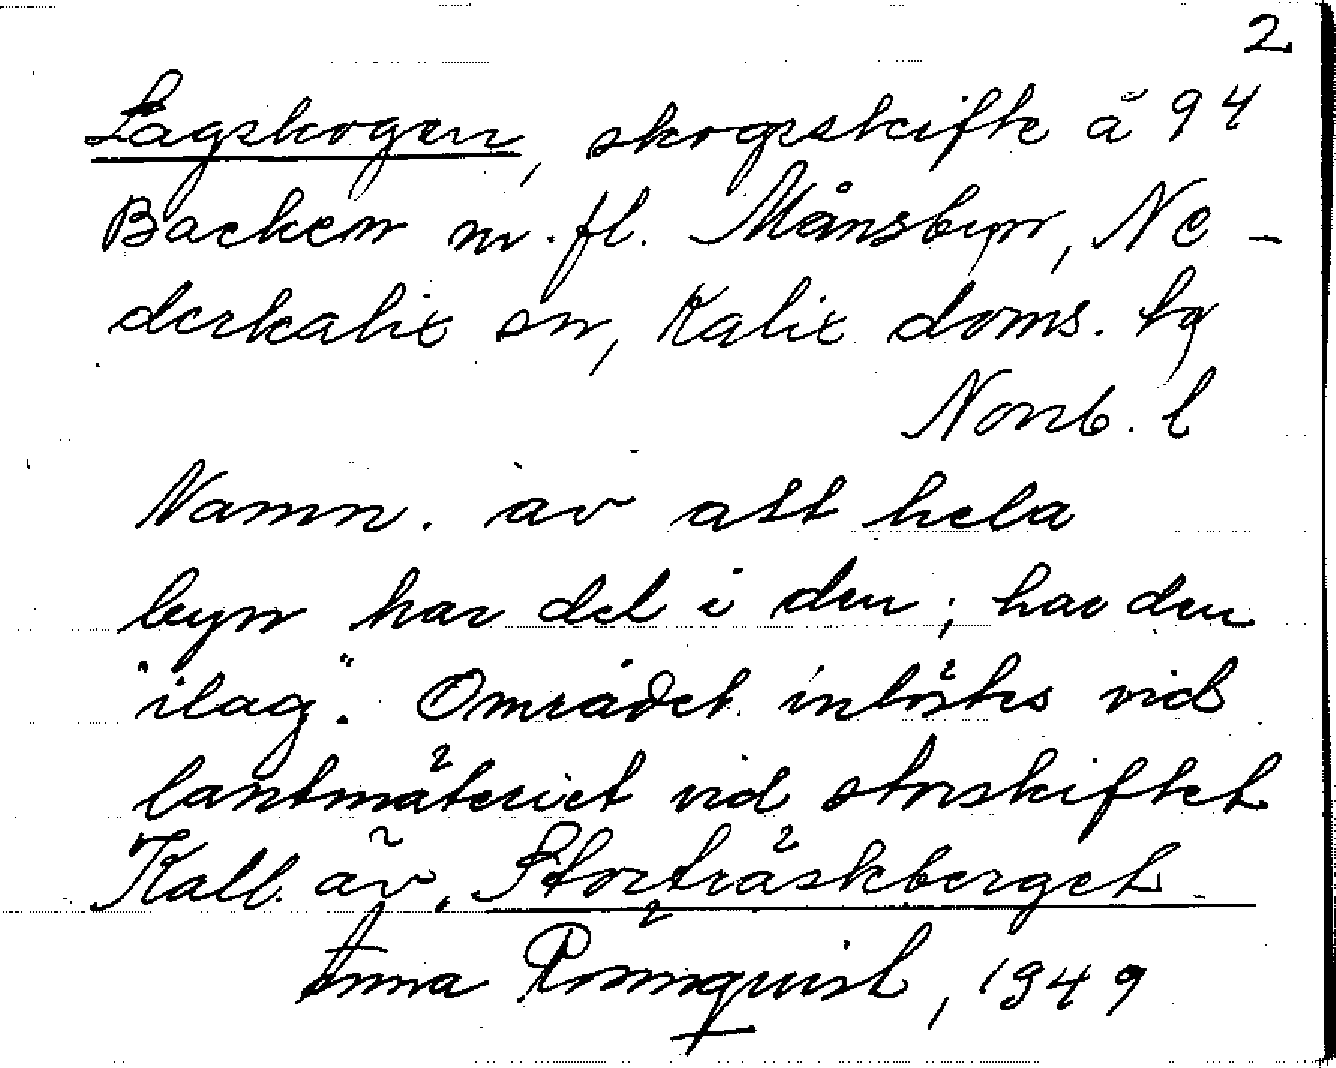 2
Lagskogen, skogsskifte å 94
Backen m. fl. Månsbyn, Ne-
derkalix sn, Kalix doms. tg
Norrb. l
Namn. av att hela
byn har del i den; har den
"ilag". Området inlöstes vid
lantmäteriet vid storskiftet
Kall. äv. Storträskberget
Anna Rönnquist, 1949